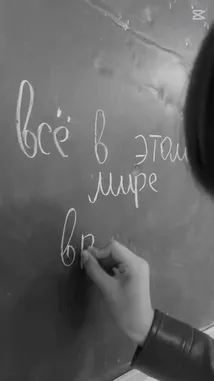 всё в этом
мире